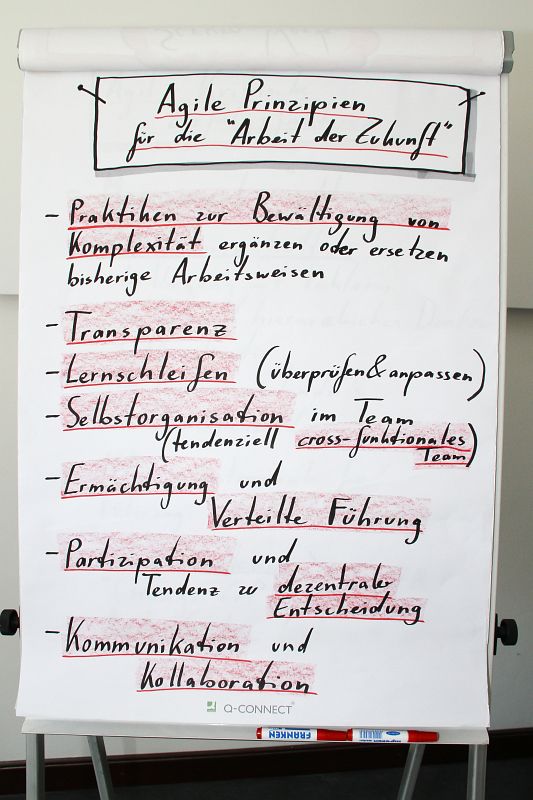 Agile Prinzipien
für die "Arbeit der Zukunft"
- Praktiken zur Bewältigung von
Komplexität ergänzen oder ersetzen
bisherige Arbeitsweisen
- Transparenz
- Lernschleifen (überprüfen & anpassen)
- Selbstorganisation im Team
(tendenziell cross-funktionales
Team)
- Ermächtigung und
Verteilte Führung
- Partizipation und
Tendenz zu dezentraler
Entscheidung
- Kommunikation und
Kollaboration
Q-CONNECT
FRANKEN